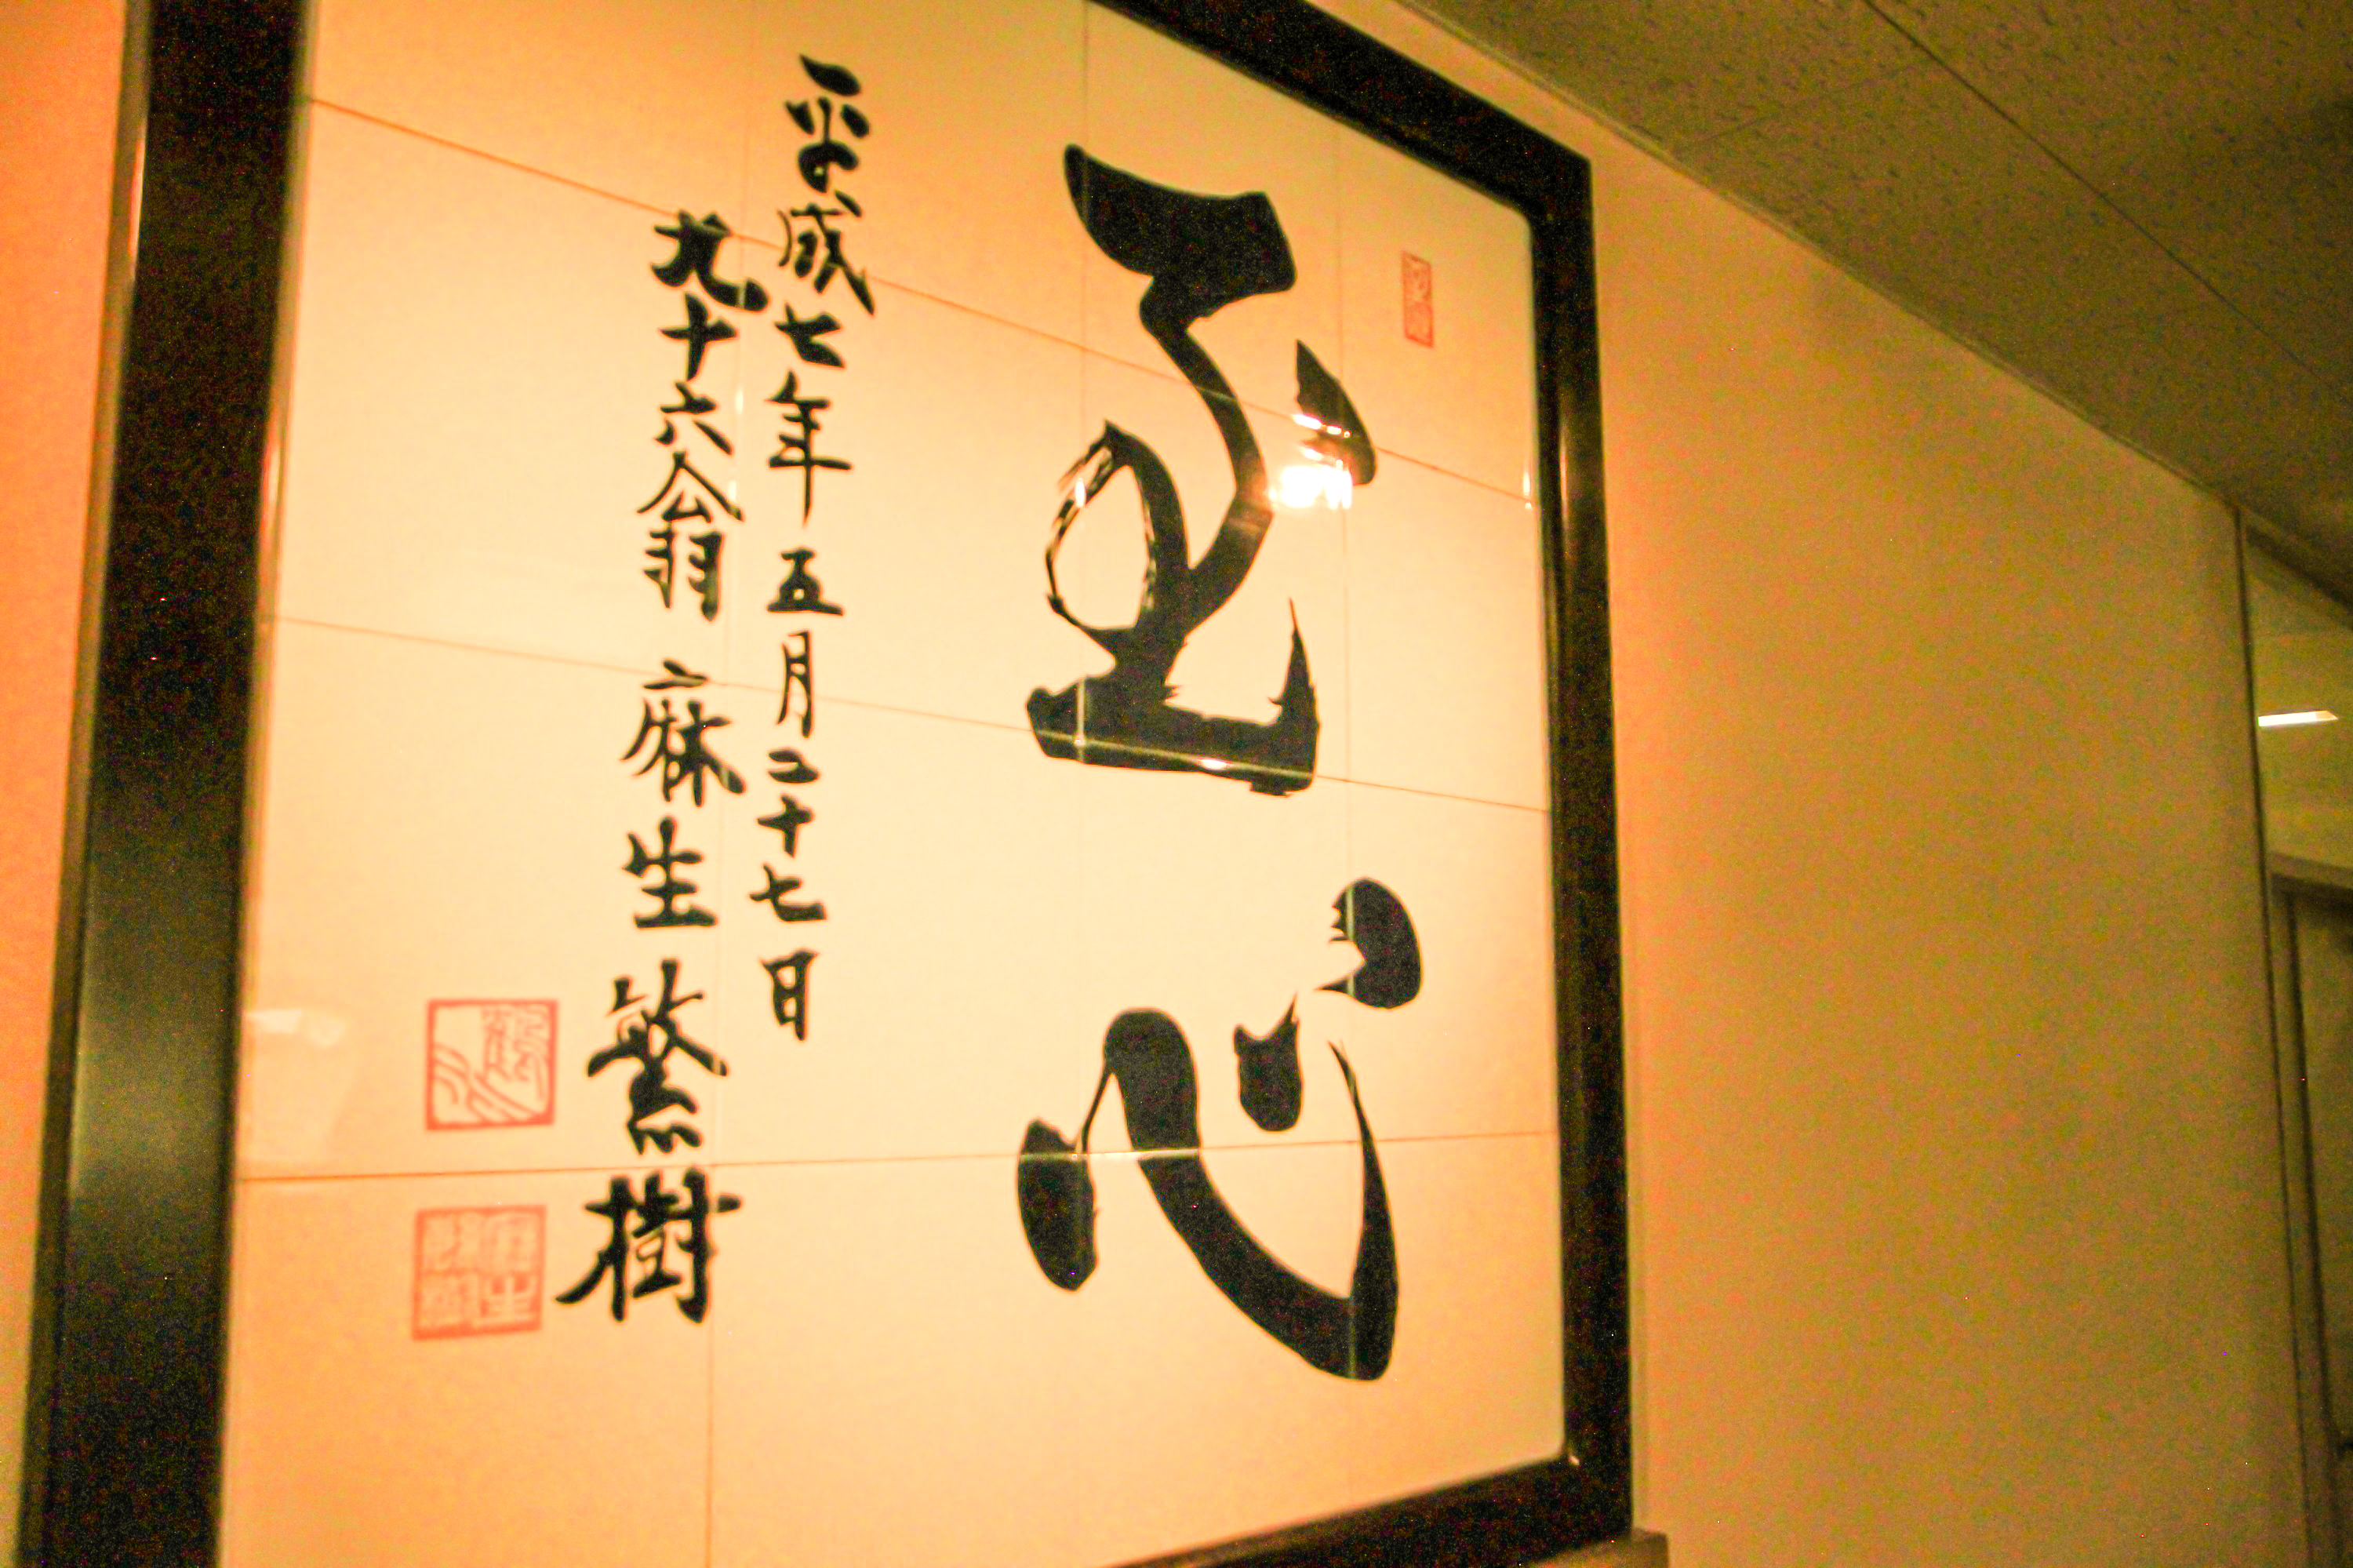 正心
平成七年五月二十七日
九十六翁 麻生繁樹